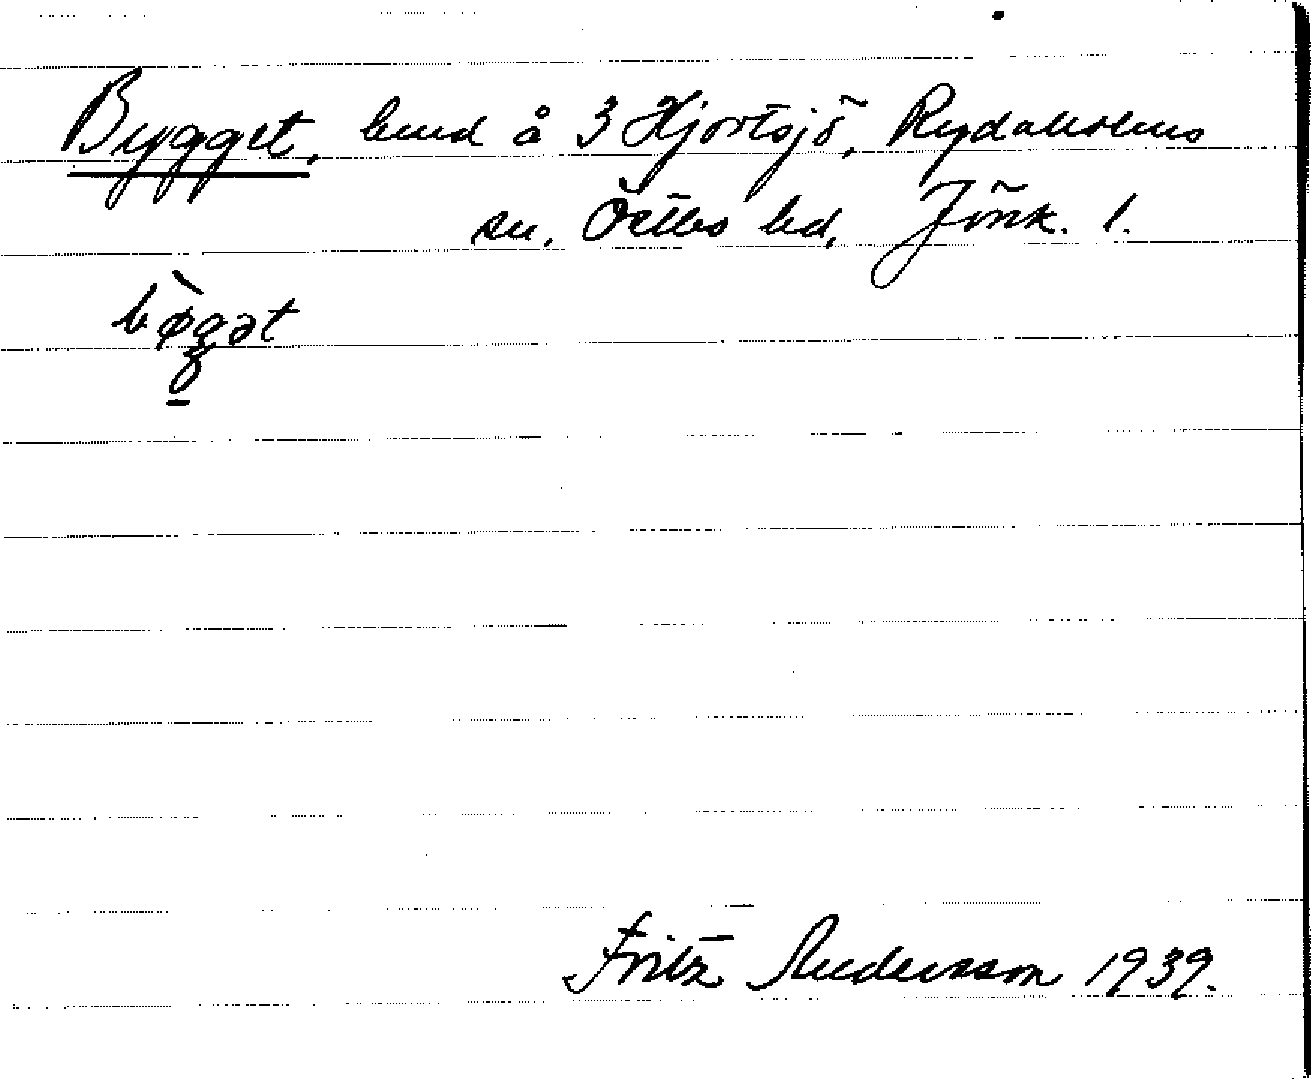 Bygget, lund å 3 Hjortsjö, Rydaholms
sn, Östbo hd, Jönk. l.
bø̀gət
Fritz Andersson 1939.